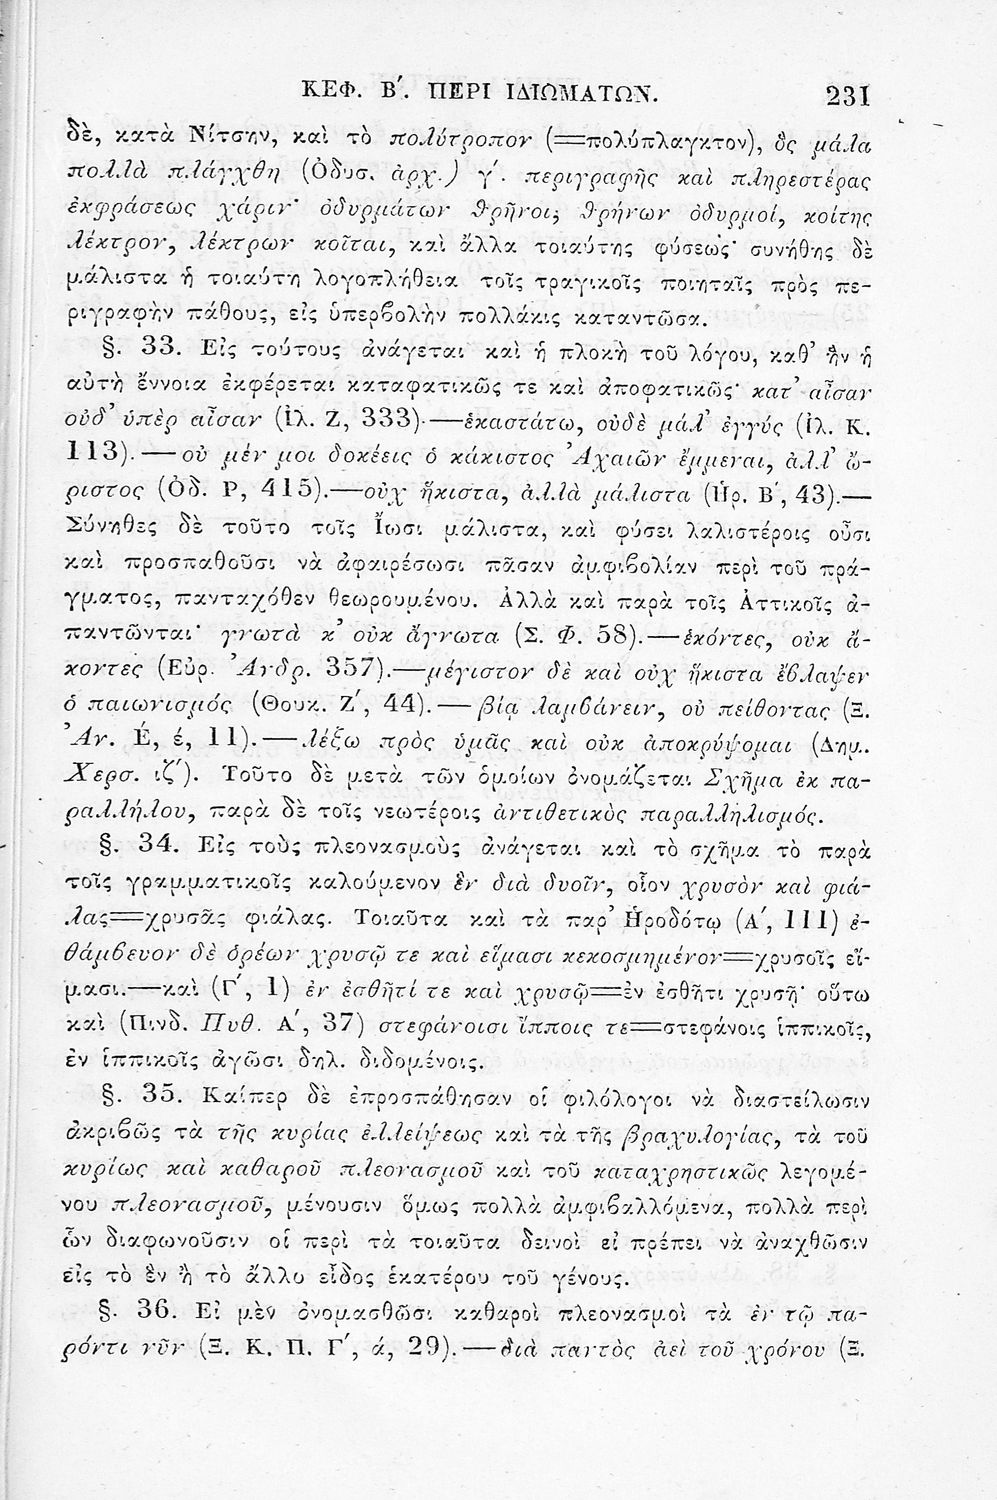 ΚΕΦ. Β΄. ΠΕΡΙ ΙΔΙΩΜΑΤΩΝ. 231
δὲ, κατὰ Νίτσην, καὶ τὸ πολύτροπον (=πολύπλαγκτον), ὃς μάλα
πολλὰ πλάγχθη (Ὀδυσ. ἀρχ.) γ΄. περιγραφῆς καὶ πληρεστέρας
ἐκφράσεως χάριν· ὀδυρμάτων θρῆνοι, θρήνων ὀδυρμοί, κοίτης
λέκτρον, λέκτρων κοῖται, καὶ ἄλλα τοιαύτης φύσεως· συνήθης δὲ
μάλιστα ἡ τοιαύτη λογοπλήθεια τοῖς τραγικοῖς ποιηταῖς πρὸς πε-
ριγραφὴν πάθους, εἰς ὑπερβολὴν πολλάκις καταντῶσα.
§. 33. Εἰς τούτους ἀνάγεται καὶ ἡ πλοκὴ τοῦ λόγου, καθ’ ἣν ἡ
αὐτὴ ἔννοια ἐκφέρεται καταφατικῶς τε καὶ ἀποφατικῶς· κατ’ αἶσαν
οὐδ’ ὑπὲρ αἶσαν (Ἰλ. Ζ, 333)·—ἑκαστάτω, οὐδὲ μάλ’ ἐγγύς (Ἰλ. Κ.
113).—οὐ μέν μοι δοκέεις ὁ κάκιστος Ἀχαιῶν ἔμμεναι, ἀλλ’ ὤ-
ριστος (Ὀδ. Ρ, 415).—οὐχ ἥκιστα, ἀλλὰ μάλιστα (Ἡρ. Β΄, 43).—
Σύνηθες δὲ τοῦτο τοῖς Ἴωσι μάλιστα, καὶ φύσει λαλιστέροις οὖσι
καὶ προσπαθοῦσι νὰ ἀφαιρέσωσι πᾶσαν ἀμφιβολίαν περὶ τοῦ πρά-
γματος, πανταχόθεν θεωρουμένου. Ἀλλὰ καὶ παρὰ τοῖς Ἀττικοῖς ἀ-
παντῶνται· γνωτὰ κ’ οὐκ ἄγνωτα (Σ. Φ. 58).—ἑκόντες, οὐκ ἄ-
κοντες (Εὐρ. Ἀνδρ. 357).—μέγιστον δὲ καὶ οὐχ ἥκιστα ἔβλαψεν
ὁ παιωνισμός (Θουκ. Ζ΄, 44).—βίᾳ λαμβάνειν, οὐ πείθοντας (Ξ.
Ἀν. Έ, έ, 11).—λέξω πρὸς ὑμᾶς καὶ οὐκ ἀποκρύψομαι (Δημ.
Χερσ. ιζ΄). Τοῦτο δὲ μετὰ τῶν ὁμοίων ὀνομάζεται Σχῆμα ἐκ πα-
ραλλήλου, παρὰ δὲ τοῖς νεωτέροις ἀντιθετικὸς παραλληλισμός.
§. 34. Εἰς τοὺς πλεονασμοὺς ἀνάγεται καὶ τὸ σχῆμα τὸ παρὰ
τοῖς γραμματικοῖς καλούμενον ἓν διὰ δυοῖν, οἷον χρυσὸν καὶ φιά-
λας=χρυσᾶς φιάλας. Τοιαῦτα καὶ τὰ παρ’ Ἡροδότῳ (Α΄, 111) ἐ-
θάμβευον δὲ ὁρέων χρυσῷ τε καὶ εἵμασι κεκοσμημένον=χρυσοῖς εἵ-
μασι.—καὶ (Γ΄, 1) ἐν ἐσθῆτί τε καὶ χρυσῷ=ἐν ἐσθῆτι χρυσῇ· οὕτω
καὶ (Πινδ. Πυθ. Α΄, 37) στεφάνοισι ἵπποις τε=στεφάνοις ἱππικοῖς,
ἐν ἱππικοῖς ἀγῶσι δηλ. διδομένοις.
§. 35. Καίπερ δὲ ἐπροσπάθησαν οἱ φιλόλογοι νὰ διαστείλωσιν
ἀκριβῶς τὰ τῆς κυρίας ἐλλείψεως καὶ τὰ τῆς βραχυλογίας, τὰ τοῦ
κυρίως καὶ καθαροῦ πλεονασμοῦ καὶ τοῦ καταχρηστικῶς λεγομέ-
νου πλεονασμοῦ, μένουσιν ὅμως πολλὰ ἀμφιβαλλόμενα, πολλὰ περὶ
ὧν διαφωνοῦσιν οἱ περὶ τὰ τοιαῦτα δεινοὶ εἰ πρέπει νὰ ἀναχθῶσιν
εἰς τὸ ἓν ἢ τὸ ἄλλο εἶδος ἑκατέρου τοῦ γένους.
§. 36. Εἰ μὲν ὀνομασθῶσι καθαροὶ πλεονασμοὶ τὰ ἐν τῷ πα-
ρόντι νῦν (Ξ. Κ. Π. Γ΄, ά, 29).—διὰ παντὸς ἀεὶ τοῦ χρόνου (Ξ.